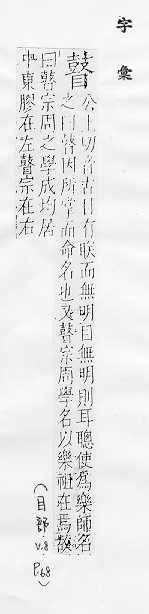 字彙
瞽
公土切音古目有眹而無明目無明則耳聰使爲樂師名
之曰瞽因所掌而命名也又瞽宗周學名以樂祖在焉故
曰瞽宗周之學成均居
中東膠在左瞽宗在右
(目部
v.8
P.68)